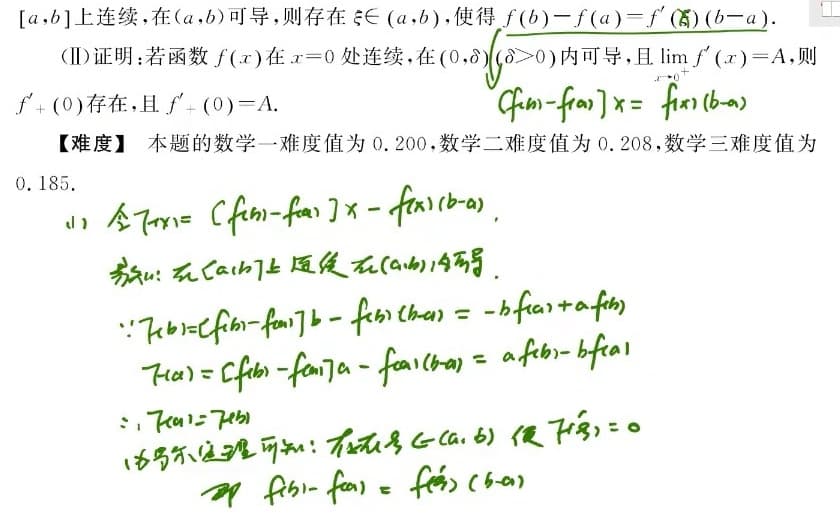 [a,b]上连续,在(a,b)可导,则存在 ξ∈(a,b),使得 f(b)-f(a)=f′(ξ)(b-a).
(Ⅱ)证明:若函数 f(x)在 x=0 处连续,在(0,δ)(δ>0)内可导,且 lim f′(x)=A,则
x→0⁺
f′₊(0)存在,且 f′₊(0)=A.
[f(b)-f(a)]x = f(x)(b-a)
【难度】 本题的数学一难度值为 0.200,数学二难度值为 0.208,数学三难度值为
0.185.
(1) 令F(x)= [f(b)-f(a)]x - f(x)(b-a),
易知: 在[a,b]上连续 在(a,b)内可导.
∵F(b)=[f(b)-f(a)]b - f(b)(b-a) = -bf(a)+af(b)
F(a)=[f(b)-f(a)]a - f(a)(b-a) = af(b)-bf(a)
∴F(a)=F(b)
由罗尔定理可知: 存在ξ∈(a,b) 使F′(ξ)=0
即 f(b)-f(a) = f′(ξ)(b-a)